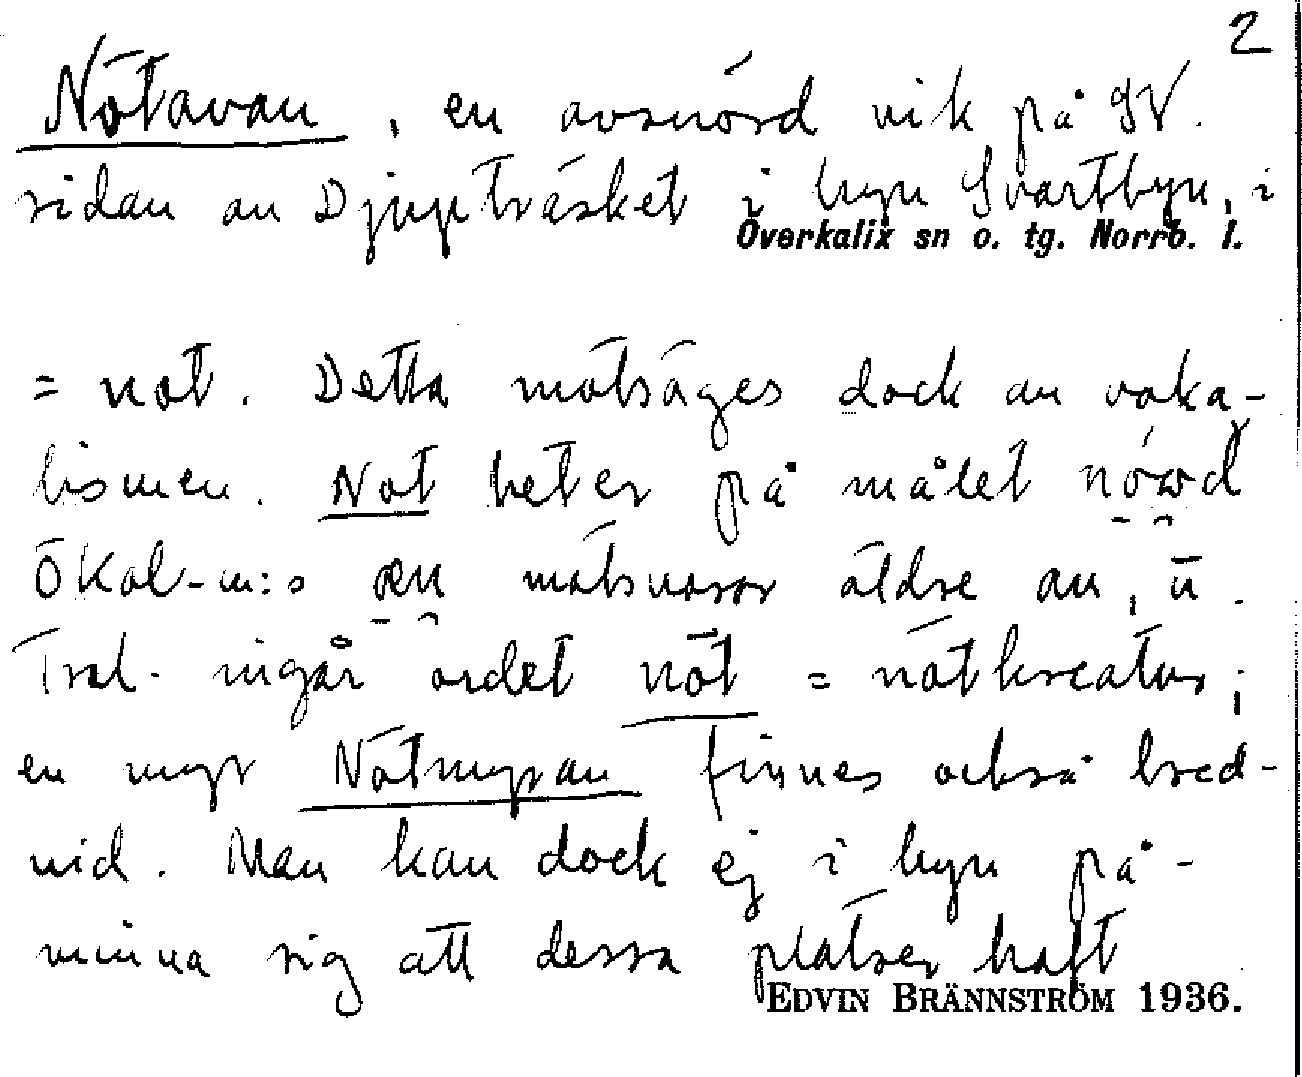 2
Nötavan, en avsnörd vik på SV.
sidan av Djupträsket i byn Svartbyn, i
Överkalix sn o. tg. Norrb. l.
= not. Detta motsäges dock av voka-
lismen. Not heter på målet
Ökal-m:s motsvarar äldre au, ū.
Trol. ingår ordet nöt = nötkreatur;
en myr Nötmyran finnes också bred-
vid. Man kan dock ej i byn på-
minna sig att dessa platser haft
EDVIN BRÄNNSTRÖM 1936.